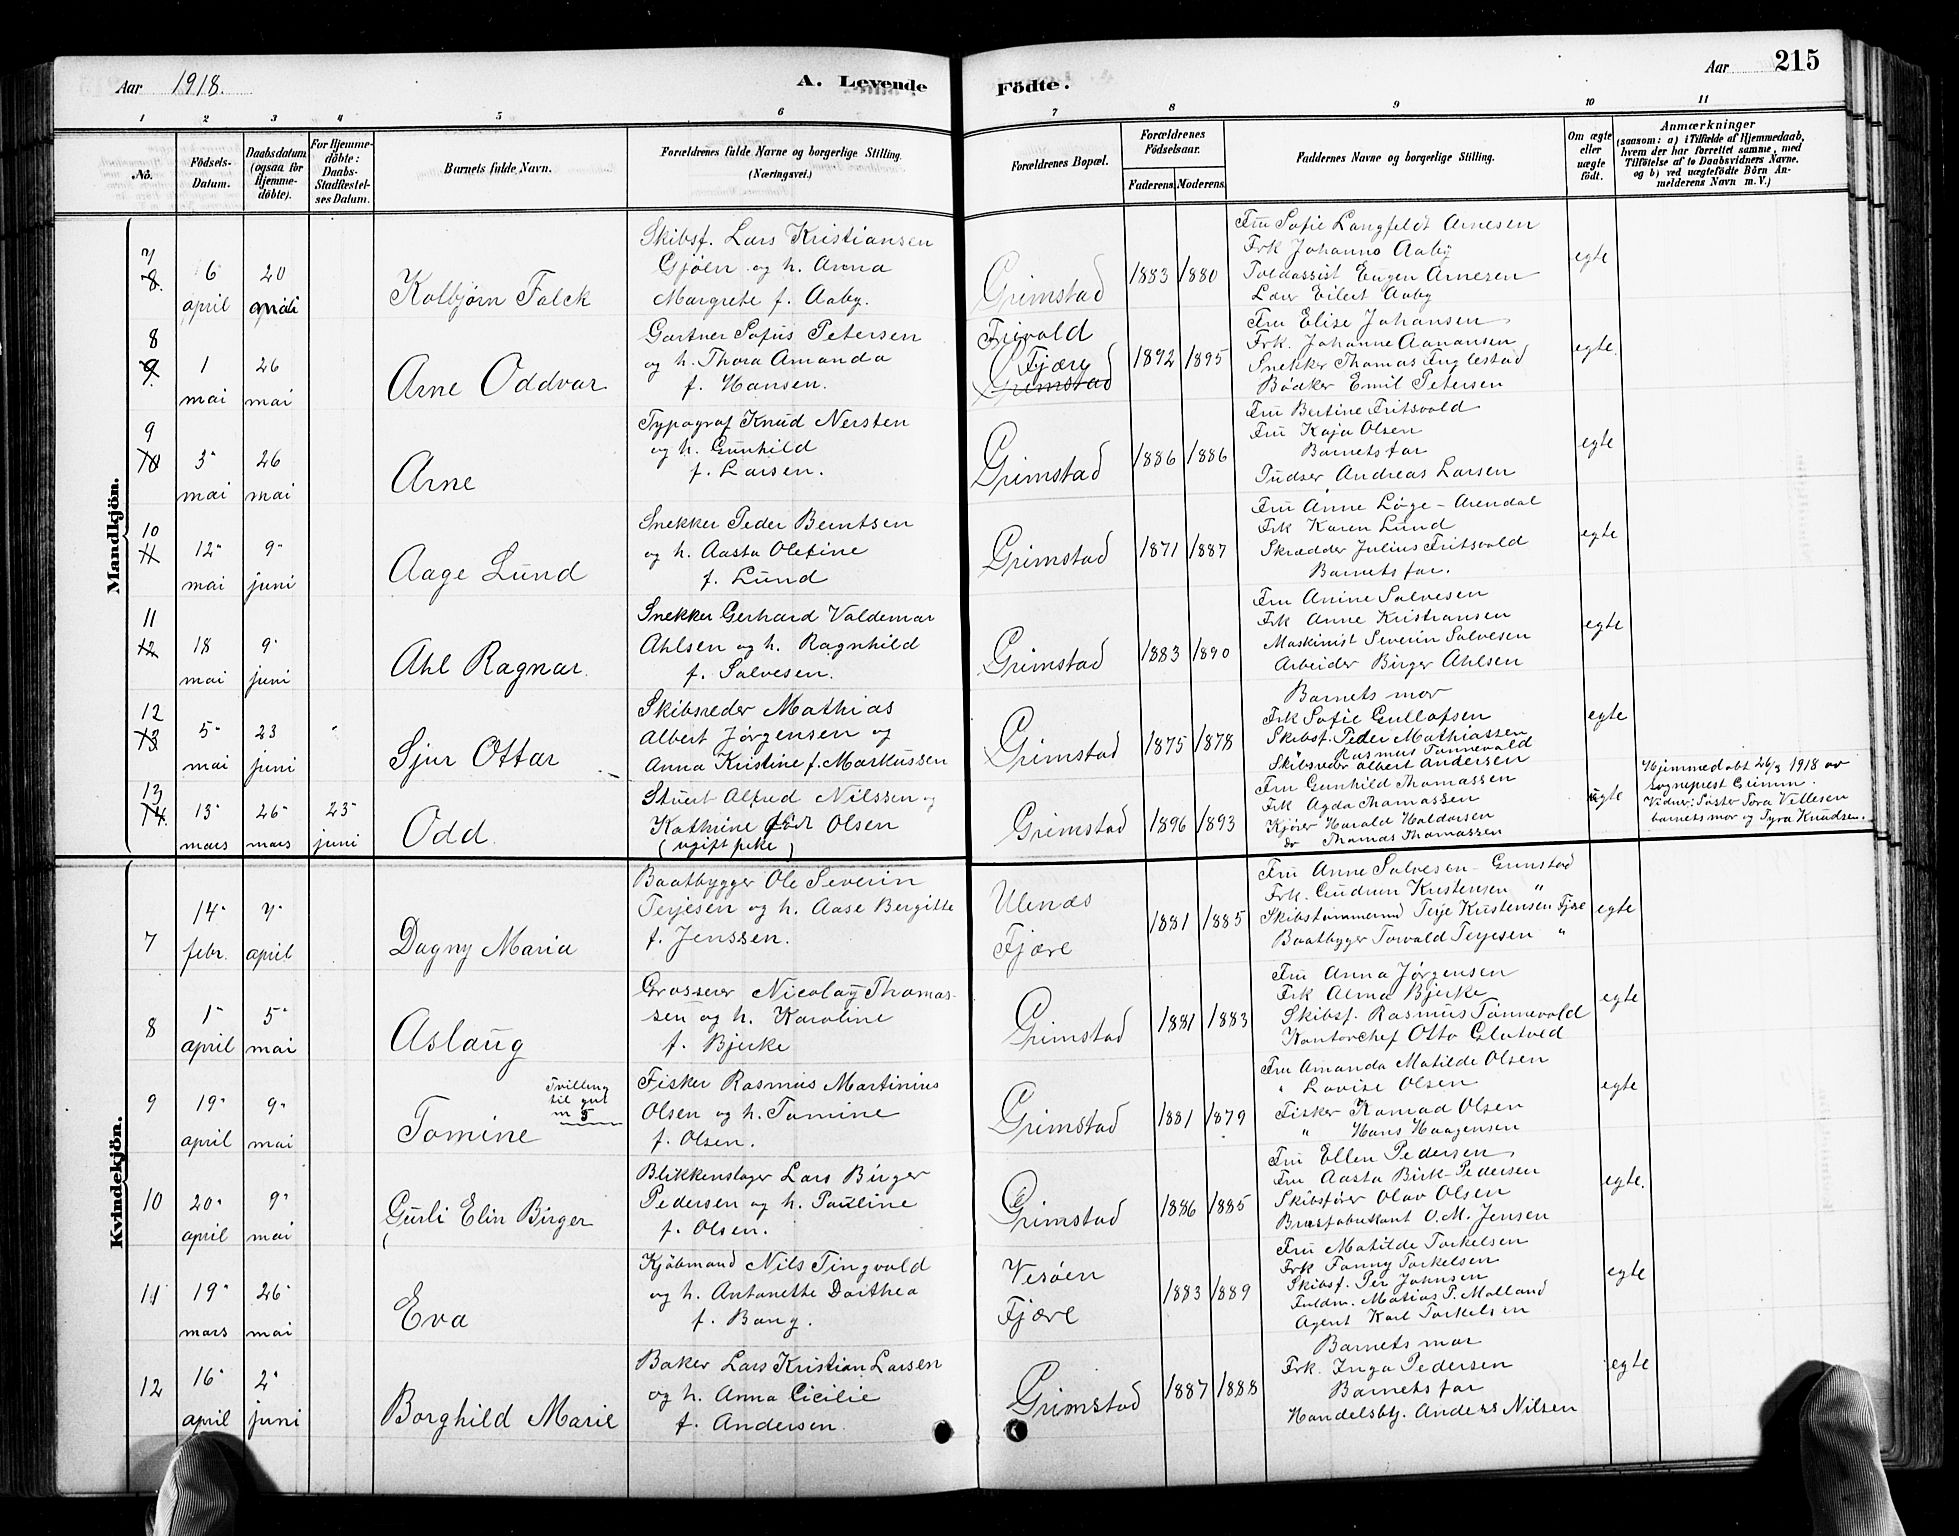 Aar 1918.
A. Levende
Födte.
Aar 215
1 2 3 4 5 6 7 8 9 10 11
No.
Födsels-
Datum.
Daabsdatum
(ogsaa for
Hjemme-
döbte).
For Hjemme-
döbte:
Daabs-
Stadfæstel-
ses Datum.
Barnets fulde Navn.
Forældrenes fulde Navne og borgerlige Stilling.
(Næringsvei.)
Forældrenes Bopæl.
Forældrenes
Födselsaar.
Faderens. Moderens.
Faddernes Navne og borgerlige Stilling.
Om ægte
eller
uægte
födt.
Anmærkninger
(saasom: a) i Tilfælde af Hjemmedaab,
hvem der har forrettet samme, med
Tilföielse af to Daabsvidners Navne.
og b) ved uægtefödte Börn An-
melderens Navn m. V.)
Mandkjön.
7
8.
6 april
20 april
Kolbjørn Falck
Skibsf. Lars Kristiansen
Gjøen og h. Anna
Margrete f. Aaby.
Grimstad
1883 1880
Fru Sofie Langfeldt Arnesen
Frk Johanne Aaby
Toldassist Eugen Arnesen
Lærer Eilert Aaby
egte
8
9.
1 mai
26 mai
Arne Oddvar
Gartner Sofus Petersen
og h. Thora Amanda
f. Hansen.
Fjære
Grimstad
1892 1895
Fru Elise Johansen
Frk. Johanne Aanansen
Snekker Thomas Fuglestad
Bödker Emil Petersen
egte.
9
10
3 mai
26 mai
Arne
Typograf Knud Nersten
og h. Gunhild
f. Larsen.
Grimstad
1886 1886
Fru Bertine Fritsvold
Fru Kaja Olsen
Barnets far
Pudser Andreas Larsen
egte
10
11
12 mai
9 juni
Aage Lund
Snekker Peder Berntsen
og h. Aasta Olefine
f. Lund
Grimstad
1871 1887
Fru Anne Løge - Arendal
Frk Karen Lund
Skrædder Julius Fritsvold
Barnets far.
egte
11
12
18 mai
9 juni
Ahl Ragnar.
Snekker Gerhard Valdemar
Ahlsen og h. Ragnhild
f. Salvesen.
Grimstad
1883 1890
Fru Anine Salvesen
Frk Anne Kristiansen
Maskinist Severin Salvesen
Arbeider Birger Ahlsen
egte
12
13
5 mai
23 juni
Sjur Ottar
Skibsreder Mathias
Albert Jørgensen og
Anna Kristine f. Markussen
Grimstad
1875 1878
Barnets mor
Frk Sofie Gullofsen
Skibsf. Peder Mathiassen
" Rasmus Tønnevold
Skibsreder Albert Andersen
egte
13
14.
13 mars
26 mars
23 juni
Odd.
Stuert Alfred Nilssen og
Kathrine Olsen
(ugift pike)
Grimstad
1896 1893
Fru Gunhild Thomassen
Frk Agda Thomassen
Kjører Harald Haldorsen
do Thomas Thomassen
uegte
Hjemmedøbt 26/3 1918 av
sogneprest Grimm
Vidner: Søster Tora Villesen
barnets mor og Tyra Knudsen.
Kvindekjön.
7
14 febr.
7 april
Dagny Maria
Baatbygger Ole Severin
Terjesen og h. Aase Bergitte
f. Jenssen.
Ulenes
Fjære
1881 1885
Fru Anne Salvesen - Grimstad
Frk. Gudrun Kristensen "
Skibstømmermd Terje Kristensen Fjære
Baatbygger Torvald Terjesen "
egte
8
1 april
5 mai
Aslaug
Grosserer Nicolay Thomas-
sen og h. Karoline
f. Bjerke
Grimstad
1881 1883
Fru Anna Jørgensen
Frk Alma Bjerke
Skibsf. Rasmus Tønnevold
Kontorchef Otto Glutved
egte
9
19 april
9 mai
Tomine
Tvilling
til gut
n 5
Fisker Rasmus Martinius
Olsen og h. Tomine
f. Olsen.
Grimstad
1881 1879
Fru Amanda Matilde Olsen
" Lovise Olsen
Fisker Konrad Olsen
" Hans Haagensen
egte
10
20 april
9 mai
Gurli Elin Birger
Blikkenslager Lars Birger
Pedersen og h. Pauline
f. Olsen.
Grimstad
1886 1885
Fru Ellen Pedersen
Fru Aasta Birk-Pedersen
Skibsfører Olav Olsen
Brusfabrikant O. M. Jensen
egte.
11
19 mars
26 mai
Eva
Kjöbmand Nils Tingvold
og h. Antonette Dorthea
f. Bang.
Vesøen
Fjære
1883 1889
Fru Matilde Torkelsen
Frk Fanny Torkelsen
Skibsf. Per Johnsen
Fuldm. Matias P. Molland
Agent Karl Torkelsen
egte
12
16 april
2 juni
Borghild Marie
Baker Lars Kristian Larsen
og h. Anna Cicilie
f. Andersen.
Grimstad
1887 1888
Barnets mor
Frk. Inga Pedersen
Barnets far
Handelsbtj. Anders Nilsen
egte